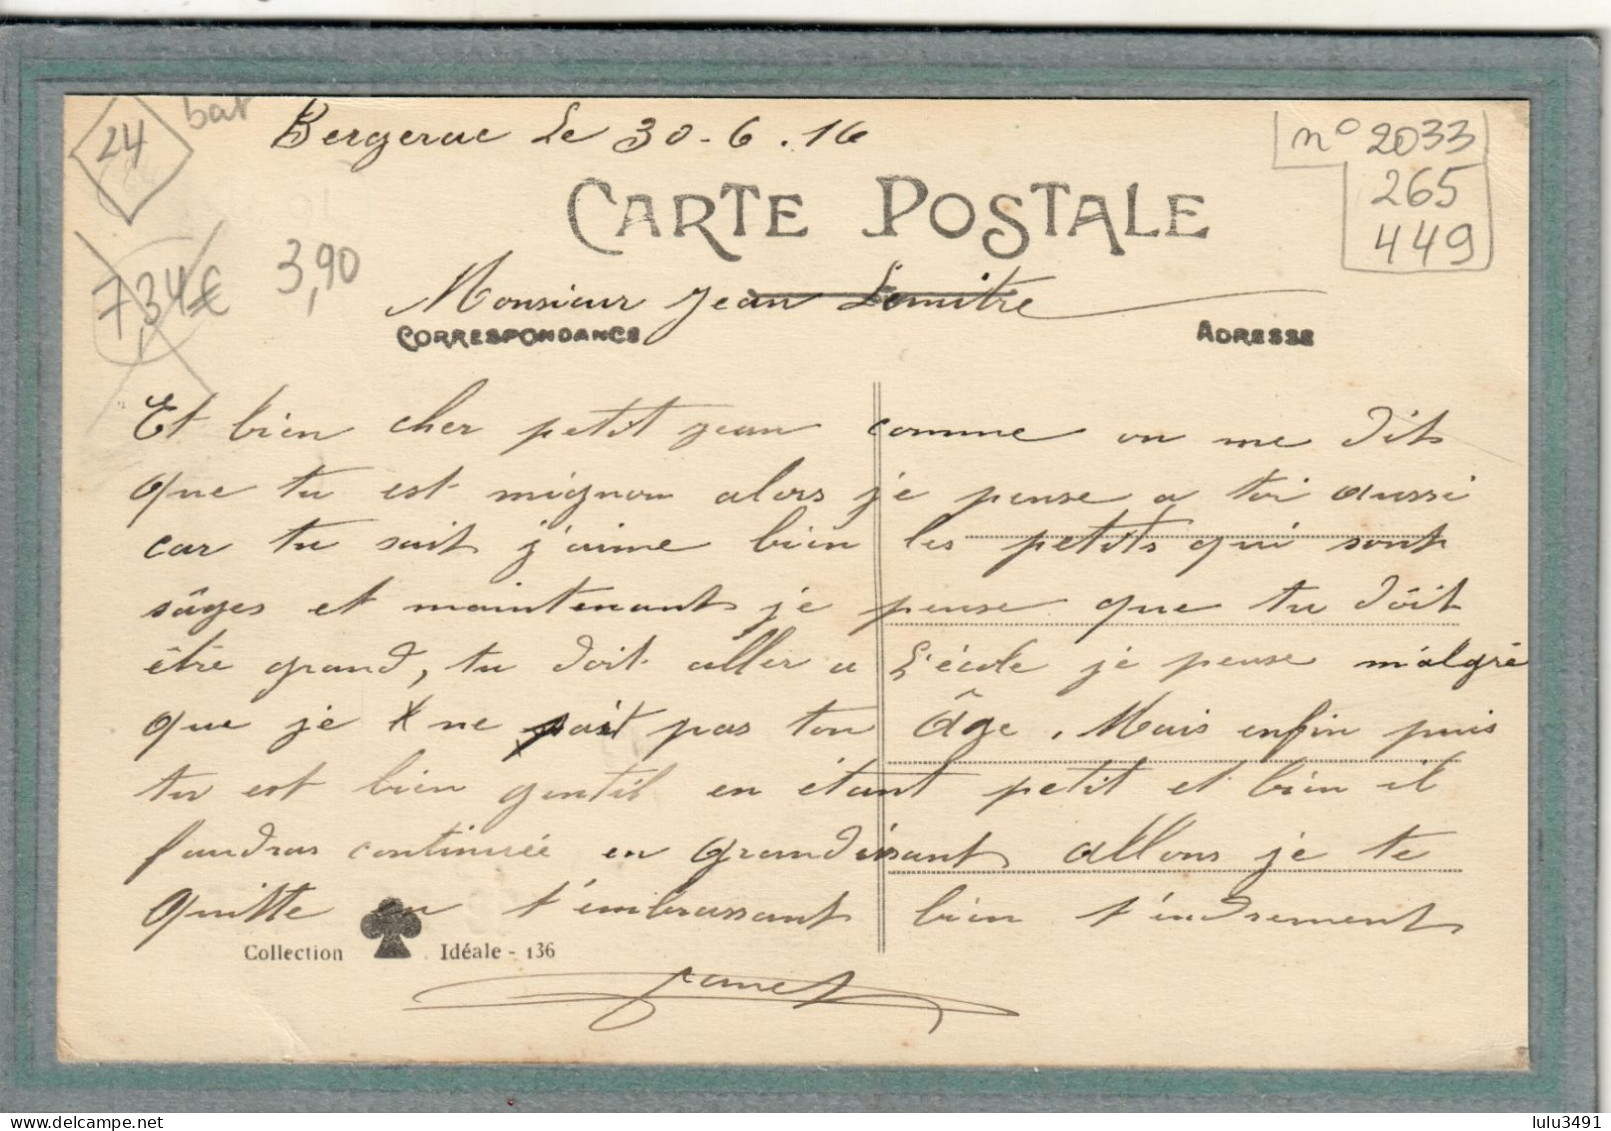 24
bat
Bergerac le 30-6.16
n° 2033
265
449
CARTE POSTALE
7,34€
3,90
Monsieur Jean Lemitre
CORRESPONDANCE
ADRESSE
Et bien cher petit jean comme on me dit
que tu est mignon alors je pense a toi aussi
car tu sait j'aime bien les petits qui sont
sâges et maintenant je pense que tu dôit
être grand, tu doit aller a l'école je pense malgré
que je ne sait pas ton âge. Mais enfin puis
tu est bien gentil en étant petit et bien il
faudras continuée en grandissant allons je te
quitte en t'embrassant bien tendrement
Collection Idéale - 136
lulu3491